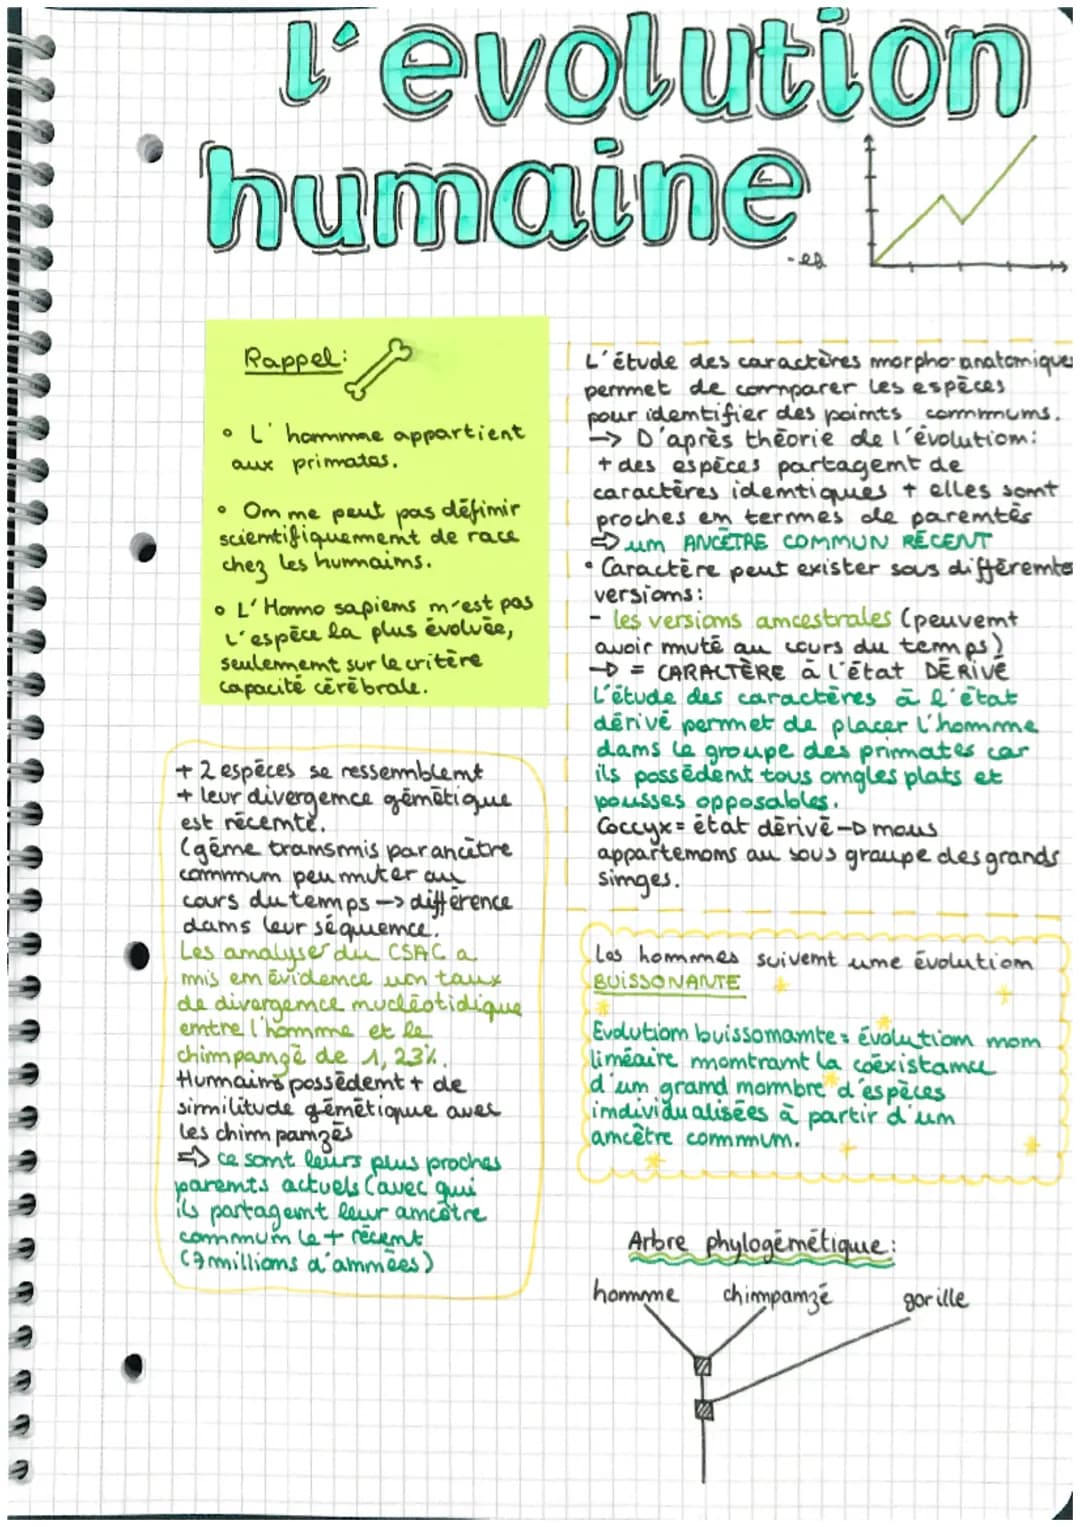 l'evolution
humaine
-es
Rappel:
• L'homme appartient
aux primates.
• On ne peut pas définir
scientifiquement de race
chez les humains.
• L'Homo sapiens n'est pas
l'espèce la plus évoluée,
seulement sur le critère
capacité cérébrale.
+ 2 espèces se ressemblent
+ leur divergence génétique
est récente.
(gène transmis par ancêtre
commun peu muter au
cours du temps -> différence
dans leur séquence.
Les analyses du CSAC a
mis en évidence un taux
de divergence nucléotidique
entre l'homme et le
chimpanzé de 1,23%.
Humains possèdent + de
similitude génétique avec
les chimpanzés
=> ce sont leurs plus proches
parents actuels (avec qui
ils partagent leur ancêtre
commum le + récent
(7 millions d'années)
L'étude des caractères morpho-anatomiques
permet de comparer les espèces
pour identifier des points communs.
-> D'après théorie de l'évolution:
+ des espèces partagent de
caractères identiques + elles sont
proches en termes de parentés
=> un ANCÊTRE COMMUN RÉCENT
• Caractère peut exister sous différentes
versions:
- les versions ancestrales (peuvent
avoir muté au cours du temps)
-> = CARACTÈRE à l'état DÉRIVÉ
L'étude des caractères à l'état
dérivé permet de placer l'homme
dans le groupe des primates car
ils possèdent tous ongles plats et
pousses opposables.
Coccyx = état dérivé -> nous
appartenons au sous groupe des grands
singes.
Les hommes suivent une évolution
BUISSONANTE
Evolution buissonante = évolution non
linéaire montrant la coéxistance
d'un grand nombre d'espèces
individualisées à partir d'un
ancêtre commun.
Arbre phylogénétique:
homme chimpanzé gorille